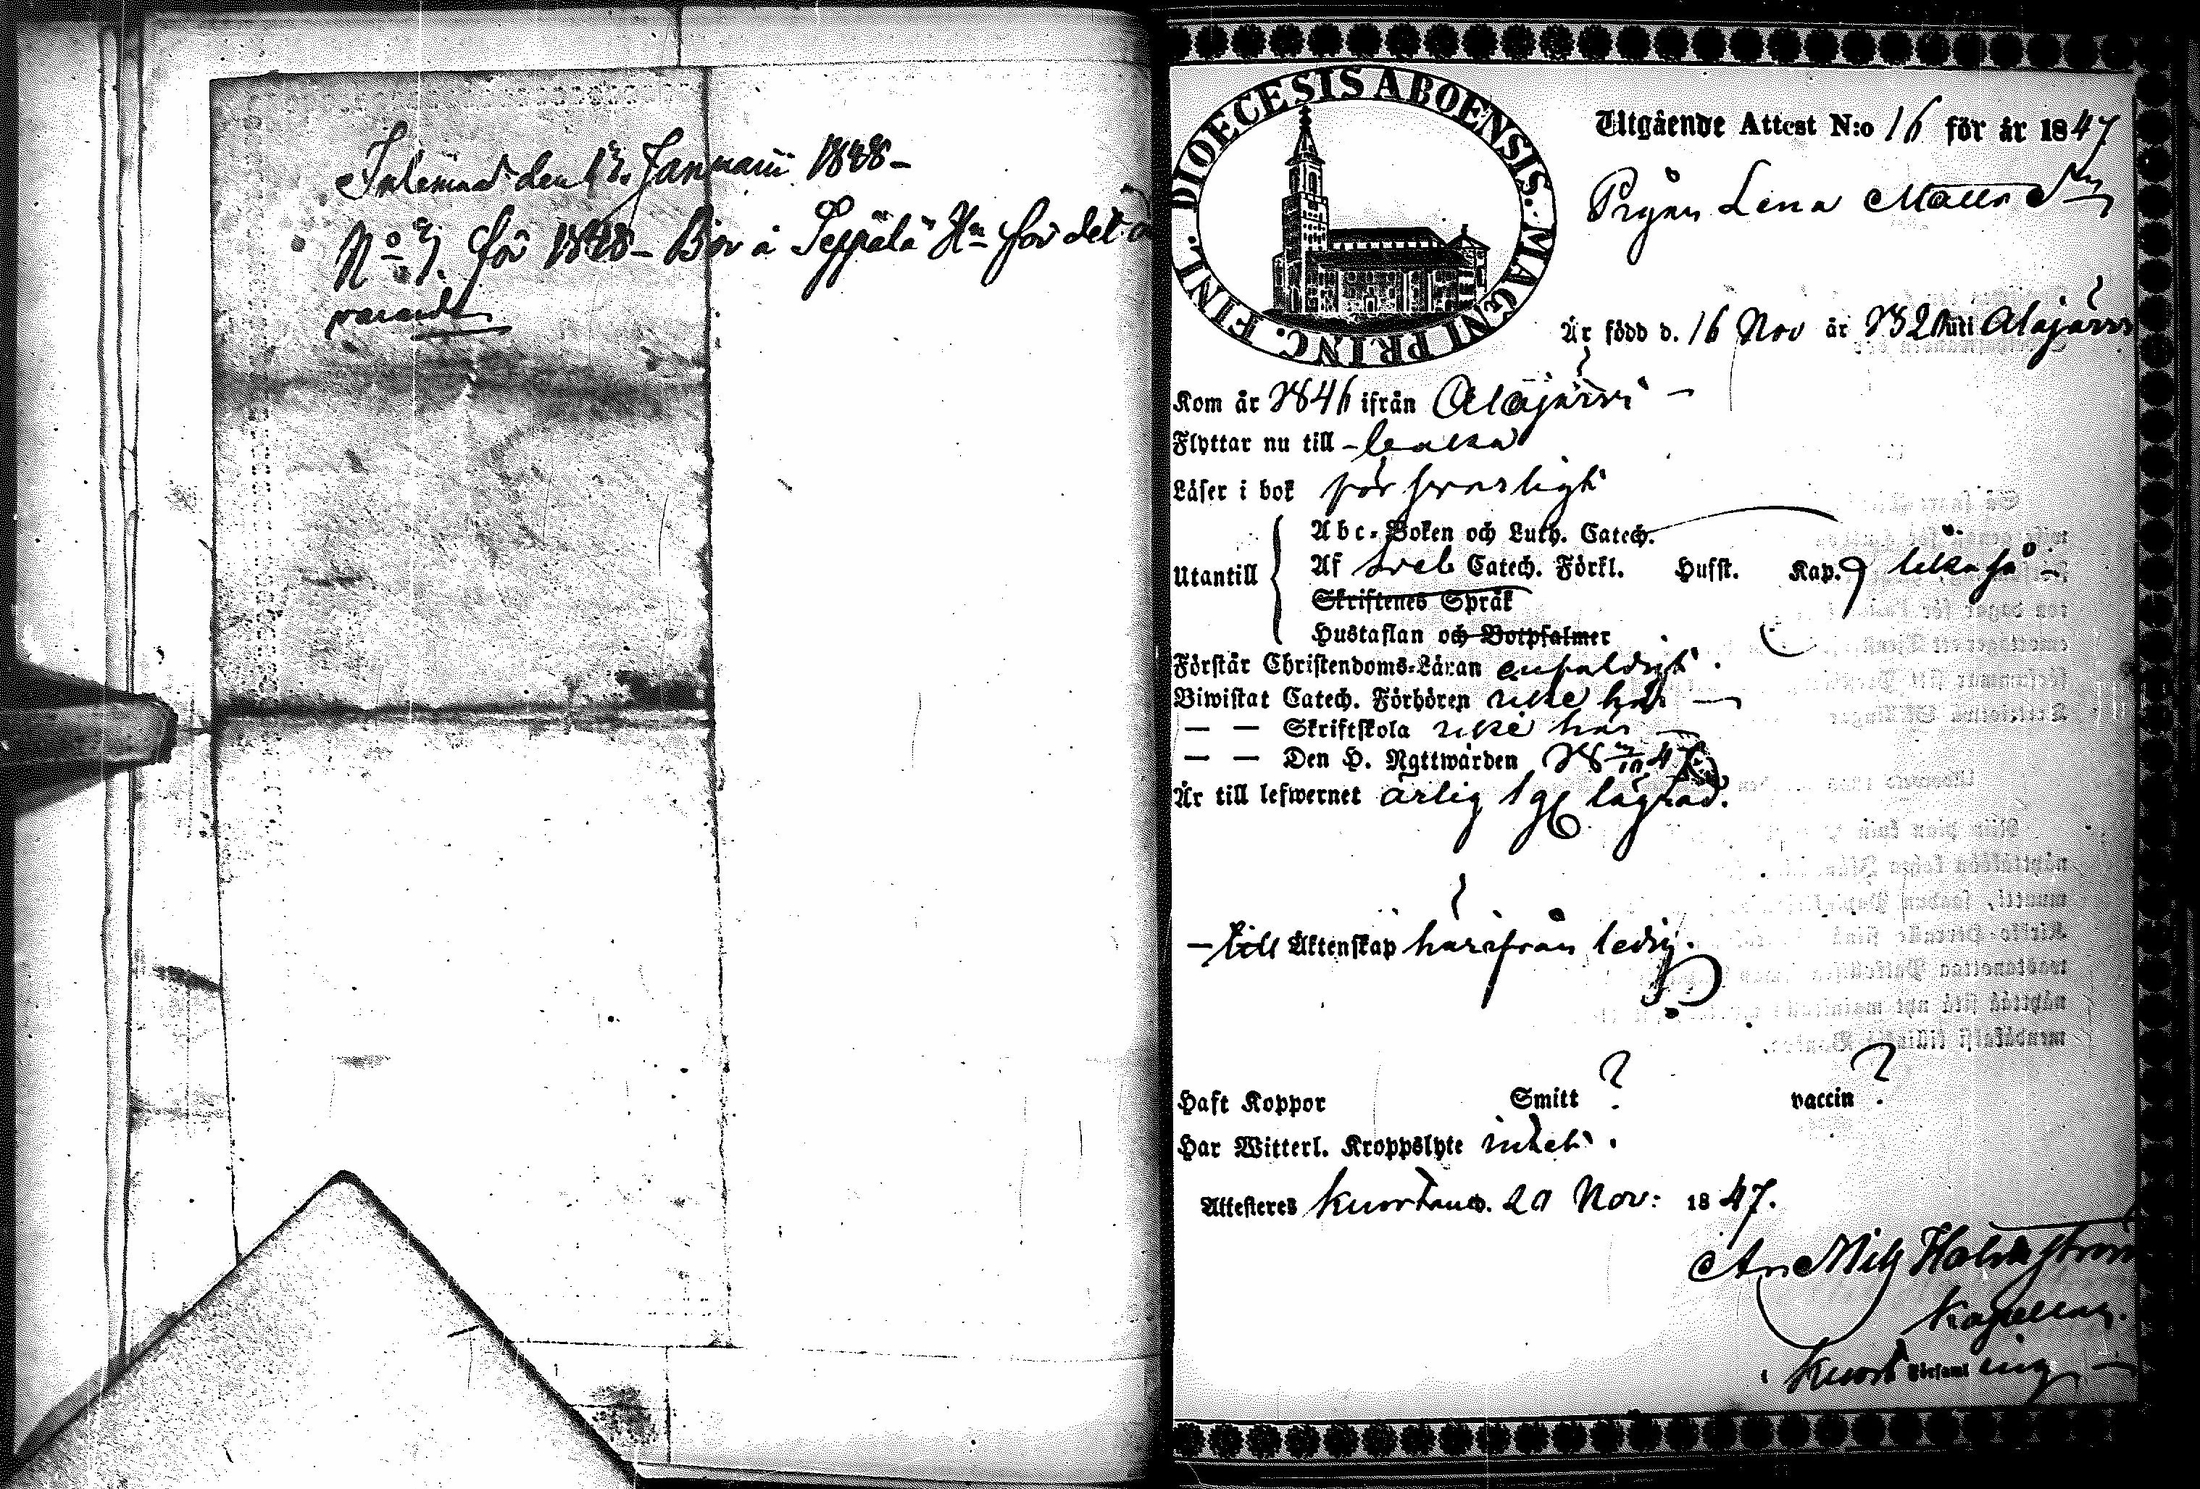 Inlemnad den 12 Januarii 1848 –
No 7. för 1848 – Bor å Seppälä Hn för det
varande
DIOECESIS ABOENSIS. MAGNI PRINC. FINL.
Utgående Attest N:o 16 för år 1847
Pigan Lena Matts
Är född d. 16 Nov år 182 uti Alajärvi
Kom år 1846 ifrån Alajärvi –
Flyttar nu till –
Läser i bok försvarligt
Utantill
Abc-Boken och Luth. Catech.
Af Sveb Catech. Förkl. Hufst. Kap. lika så –
Skriftenes Språk
Hustaflan och Botpsalmer
Förstår Christendoms-Läran enfaldigt.
Biwistat Catech. Förhören icke här –
– – Skriftskola icke här –
– – Den H. Nattwarden 18 47
Är till lefwernet ärlig lägrad.
– till Äktenskap härifrån ledig.
Haft Koppor Smitt ? vaccin ?
Har Witterl. Kroppslyte intet.
Attesteres Kuortane d. 20 Nov: 1847.
Holmström
Kapellan
Kuort Församl